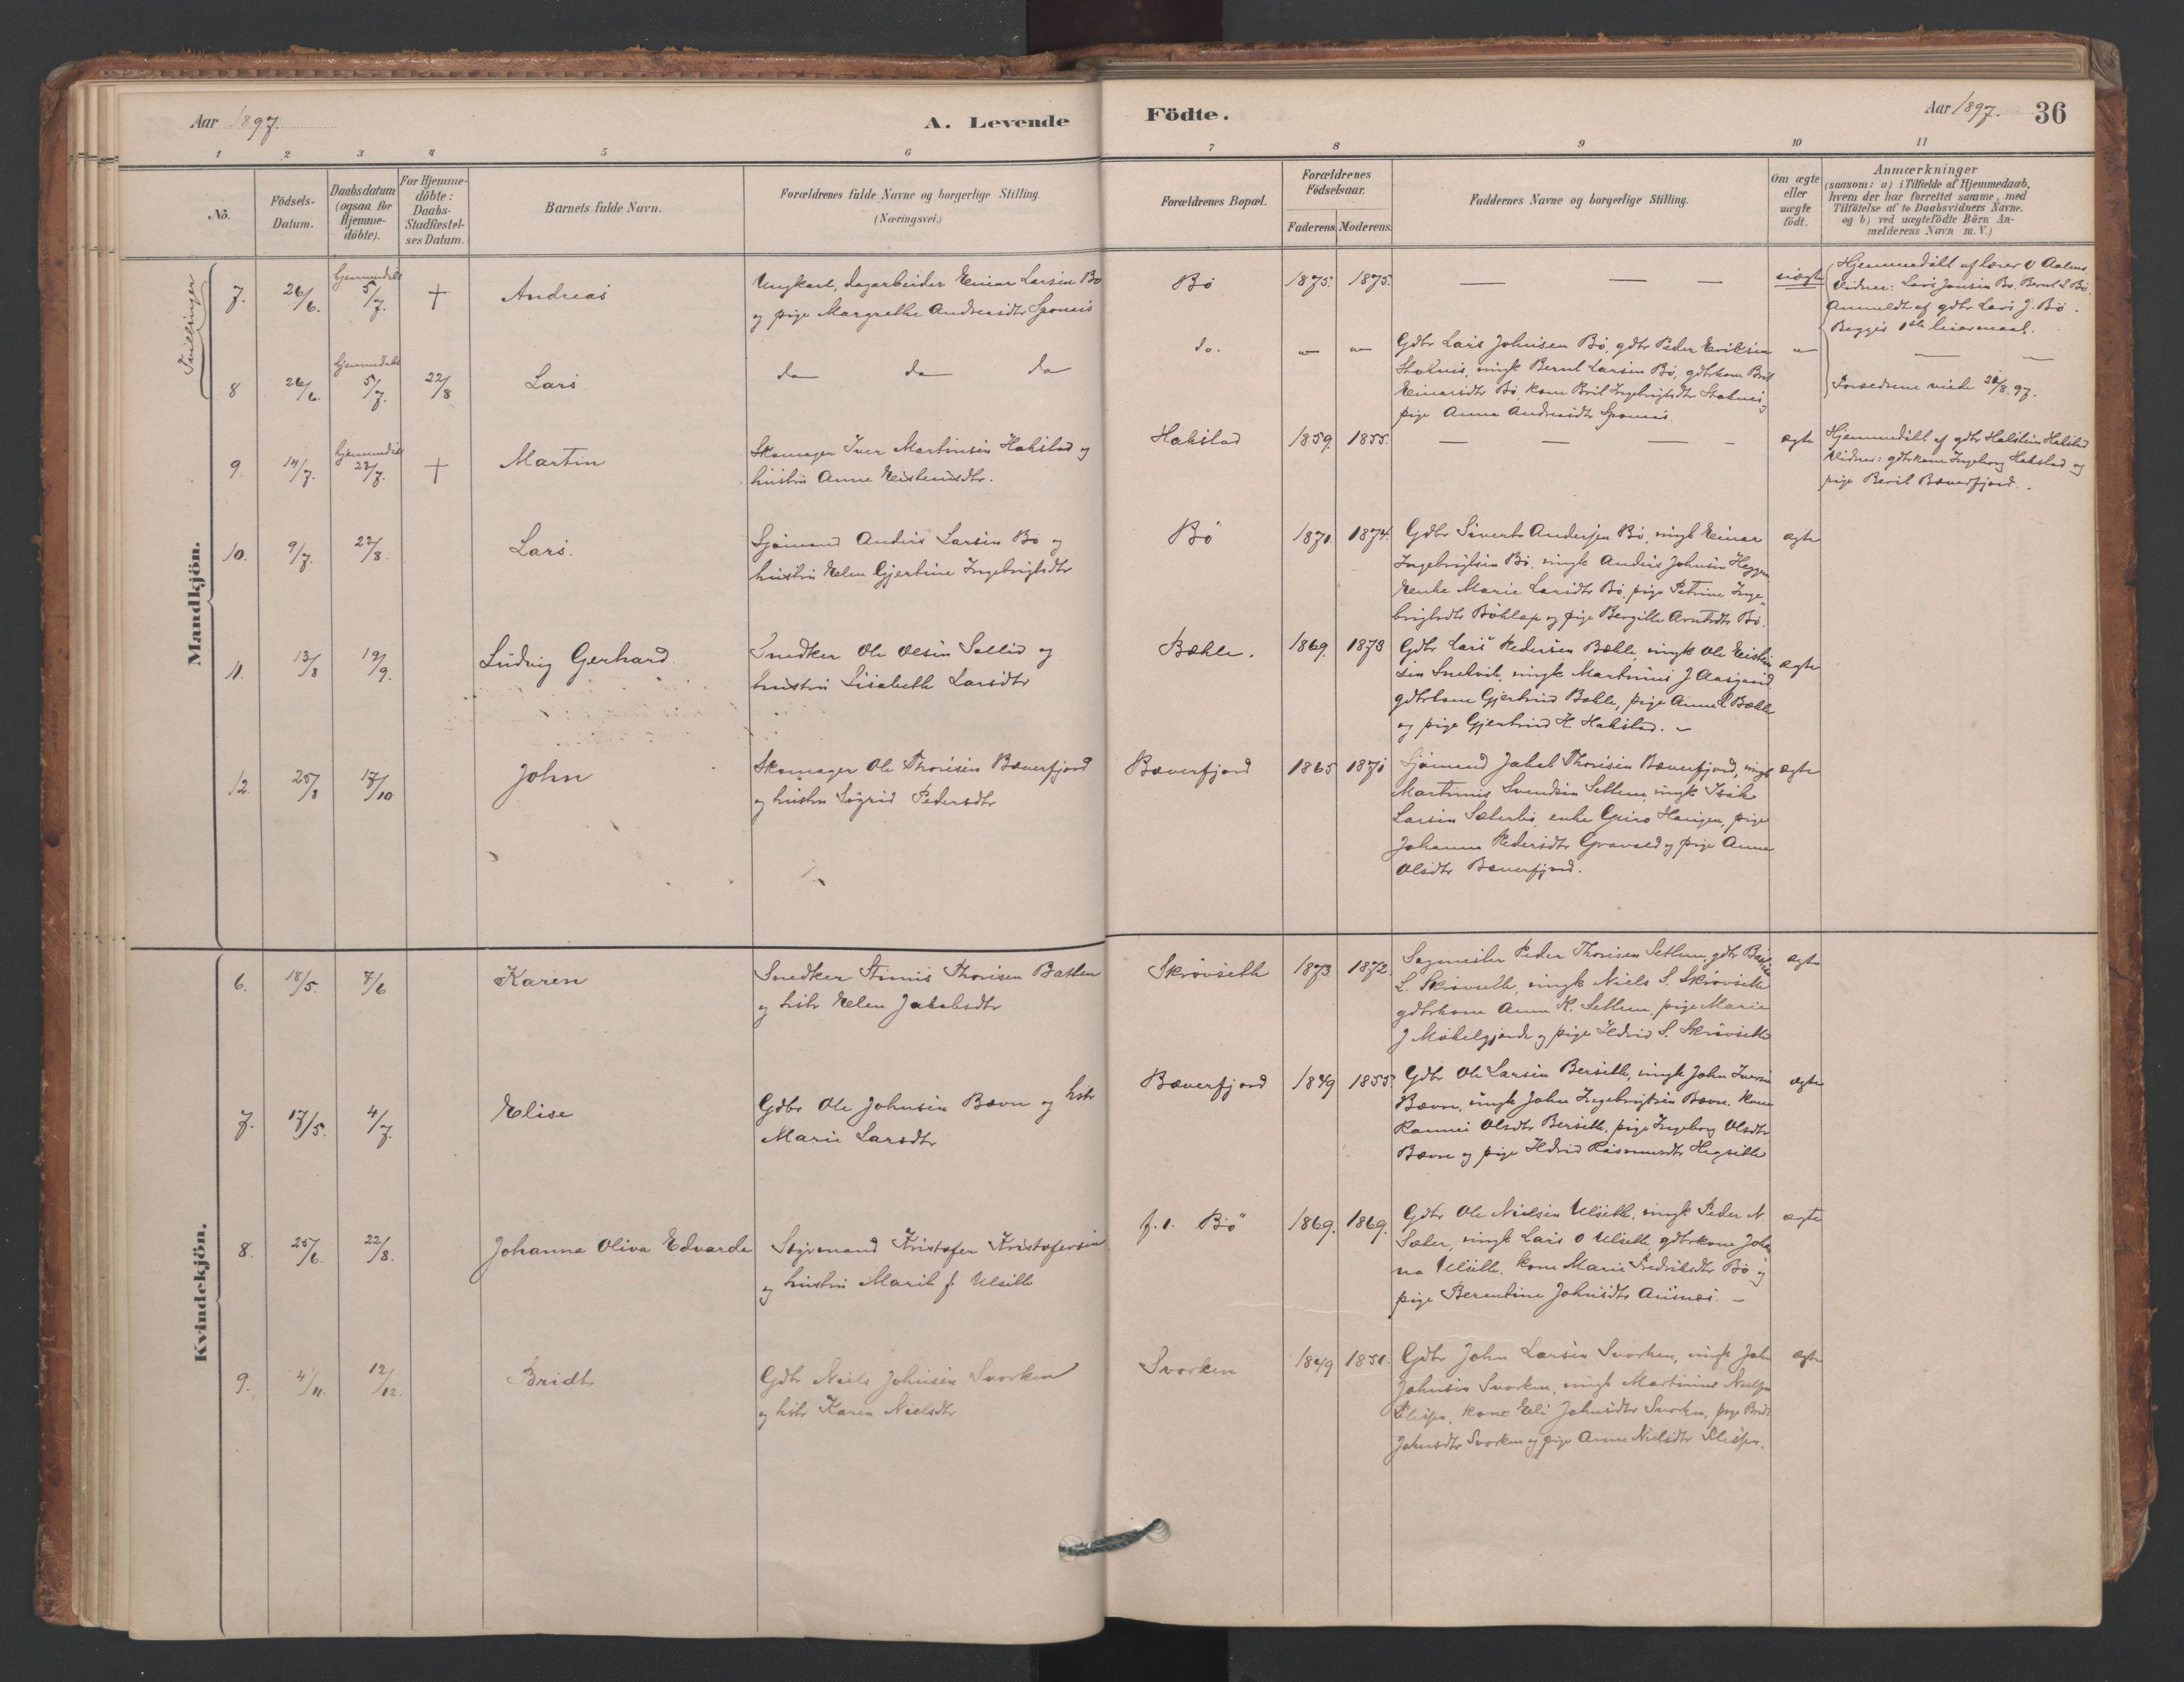 Aar 1897.
A. Levende
Födte.
Aar 1897.
36
1 2 3 4 5 6 7 8 9 10 11
No.
Födsels-
Datum.
Daabsdatum
(ogsaa for
Hjemme-
döbte).
For Hjemme-
döbte:
Daabs-
Stadfæstel-
ses Datum.
Barnets fulde Navn.
Forældrenes fulde Navne og borgerlige Stilling.
(Næringsvei.)
Forældrenes Bopæl.
Forældrenes
Födselsaar.
Faderens. Moderens.
Faddernes Navne og borgerlige Stilling.
Om ægte
eller
uægte
födt.
Anmærkninger
(saasom: a) i Tilfælde af Hjemmedaab,
hvem der har forrettet samme, med
Tilföielse af to Daabsvidners Navne,
og b) ved uægtefödte Börn An-
melderens Navn m. V.)
Mandkjön.
Tvillinger
7. 26/6. hjemmedøbt 5/7. † Andreas
Ungkarl, dagarbeider Einar Larsen Bø
og pige Margrethe Andreasdtr
Bø 1875. 1875. — — — uægte
Hjemmedøbt af lærer
Vidner: Lars Jonsen Bø, Bernt L Bø.
Anmeldt af gdbr Lars J. Bø.
Begges 1ste leiermaal.
8 26/6. hjemmedøbt 5/7. 22/8 Lars
do do do
do. " "
Gdbr Lars Johnsen Bø, gdbr Peder Eriksen
ungk Bernt Larsen Bø, gdbrkone Brit
Einarsdtr Bø, kone Brit Ingebrigtsdtr
pige Anna Andreasdtr
"
— —
9. 14/7. hjemmedøbt 23/7. † Martin
Skomager Iver Martinsen Hakstad og
hustru Anne
Hakstad 1859. 1855. — — — — ægte
Hjemmedøbt af gdbr Halstein Hakstad
Vidner: gdbrkone Ingeborg Hakstad og
pige Berit Bæverfjord.
10. 9/7. 22/8. Lars.
Sjømand Anders Larsen Bø og
hustru Elen Gjertine Ingebrigtsdtr
Bø 1871. 1874.
Gdbr Sivert Andersen Bø, ungk Einar
Ingebrigtsen Bø, ungk Anders Johnsen Heggem
Enke Marie Larsdtr Bø, pige Petrine Inge-
brigtsdtr og pige Bergitte Arntsdtr Bø.
ægte
11. 13/8 19/9. Ludvig Gerhard
Snedker Ole Olsen Sollid og
hustru Lisabeth Larsdtr
Bæhle. 1869. 1873
Gdbr Lars Pedersen Bæhle, ungk Ole
ungk Martinus J Aasgaard
gdbrkone Gjertrud Bæhle, pige Anne L Bæhle
og pige Gjertrud H. Hakstad.
ægte
12. 25/8 17/10 John
Skomager Ole Thoresen Bæverfjord
og hustru Sigrid Pedersdtr
Bæverfjord 1865 1871
Sjømand Jakob Thoresen Bæverfjord, ungk
Martinus Svendsen Settem, ungk Isak
Larsen Sæterbø, enke Guro pige
Johanna Pedersdtr og pige Anne
Olsdtr Bæverfjord.
ægte
Kvindekjön.
6. 18/5. 7/6 Karen
Snedker Thoresen
og hstr Elen Jakobsdtr
Skrøvseth 1873. 1872.
Sagmester Peder Thoresen Settem, gdbr
L. Skrøvseth, ungk Niels S. Skrøvseth
gdbrkone Anne K. Settem, pige Marie
J og pige Ildrid S. Skrøvseth
ægte
7. 17/5. 4/7. Elise
Gdbr Ole Johnsen Bævre og hstr
Marie Larsdtr
Bæverfjord 1849 1855.
Gdbr Ole Larsen Berseth, ungk John Iversen
Bævre, ungk John Ingebrigtsen Bævre. kone
Olsdtr Berseth, pige Ingeborg Olsdtr
Bævre og pige Ildrid Rasmusdtr
ægte
8. 25/6. 22/8. Johanna Oliva Edvarda
Kristofer Kristofersen
og hustru Marit f. Ulseth
f. t. Bø 1869. 1869.
Gdbr Ole Nielsen Ulseth, ungk Peder N
Sæter, ungk Lars O Ulseth, gdbrkone Johan
na Ulseth, kone Marie Fredriksdtr Bø og
pige Berentine Johnsdtr Aunæs. –
ægte
9. 4/11. 12/12. Bridt
Gdbr Niels Johnsen Svorken
og hstr Karen Nielsdtr
Svorken 1849 1851.
Gdbr John Larsen Svorken, ungk John
Johnsen Svorken, ungk Martinus
kone Eli Johnsdtr Svorken, pige Bridt
Johnsdtr Svorken og pige Anne Nielsdtr
ægte